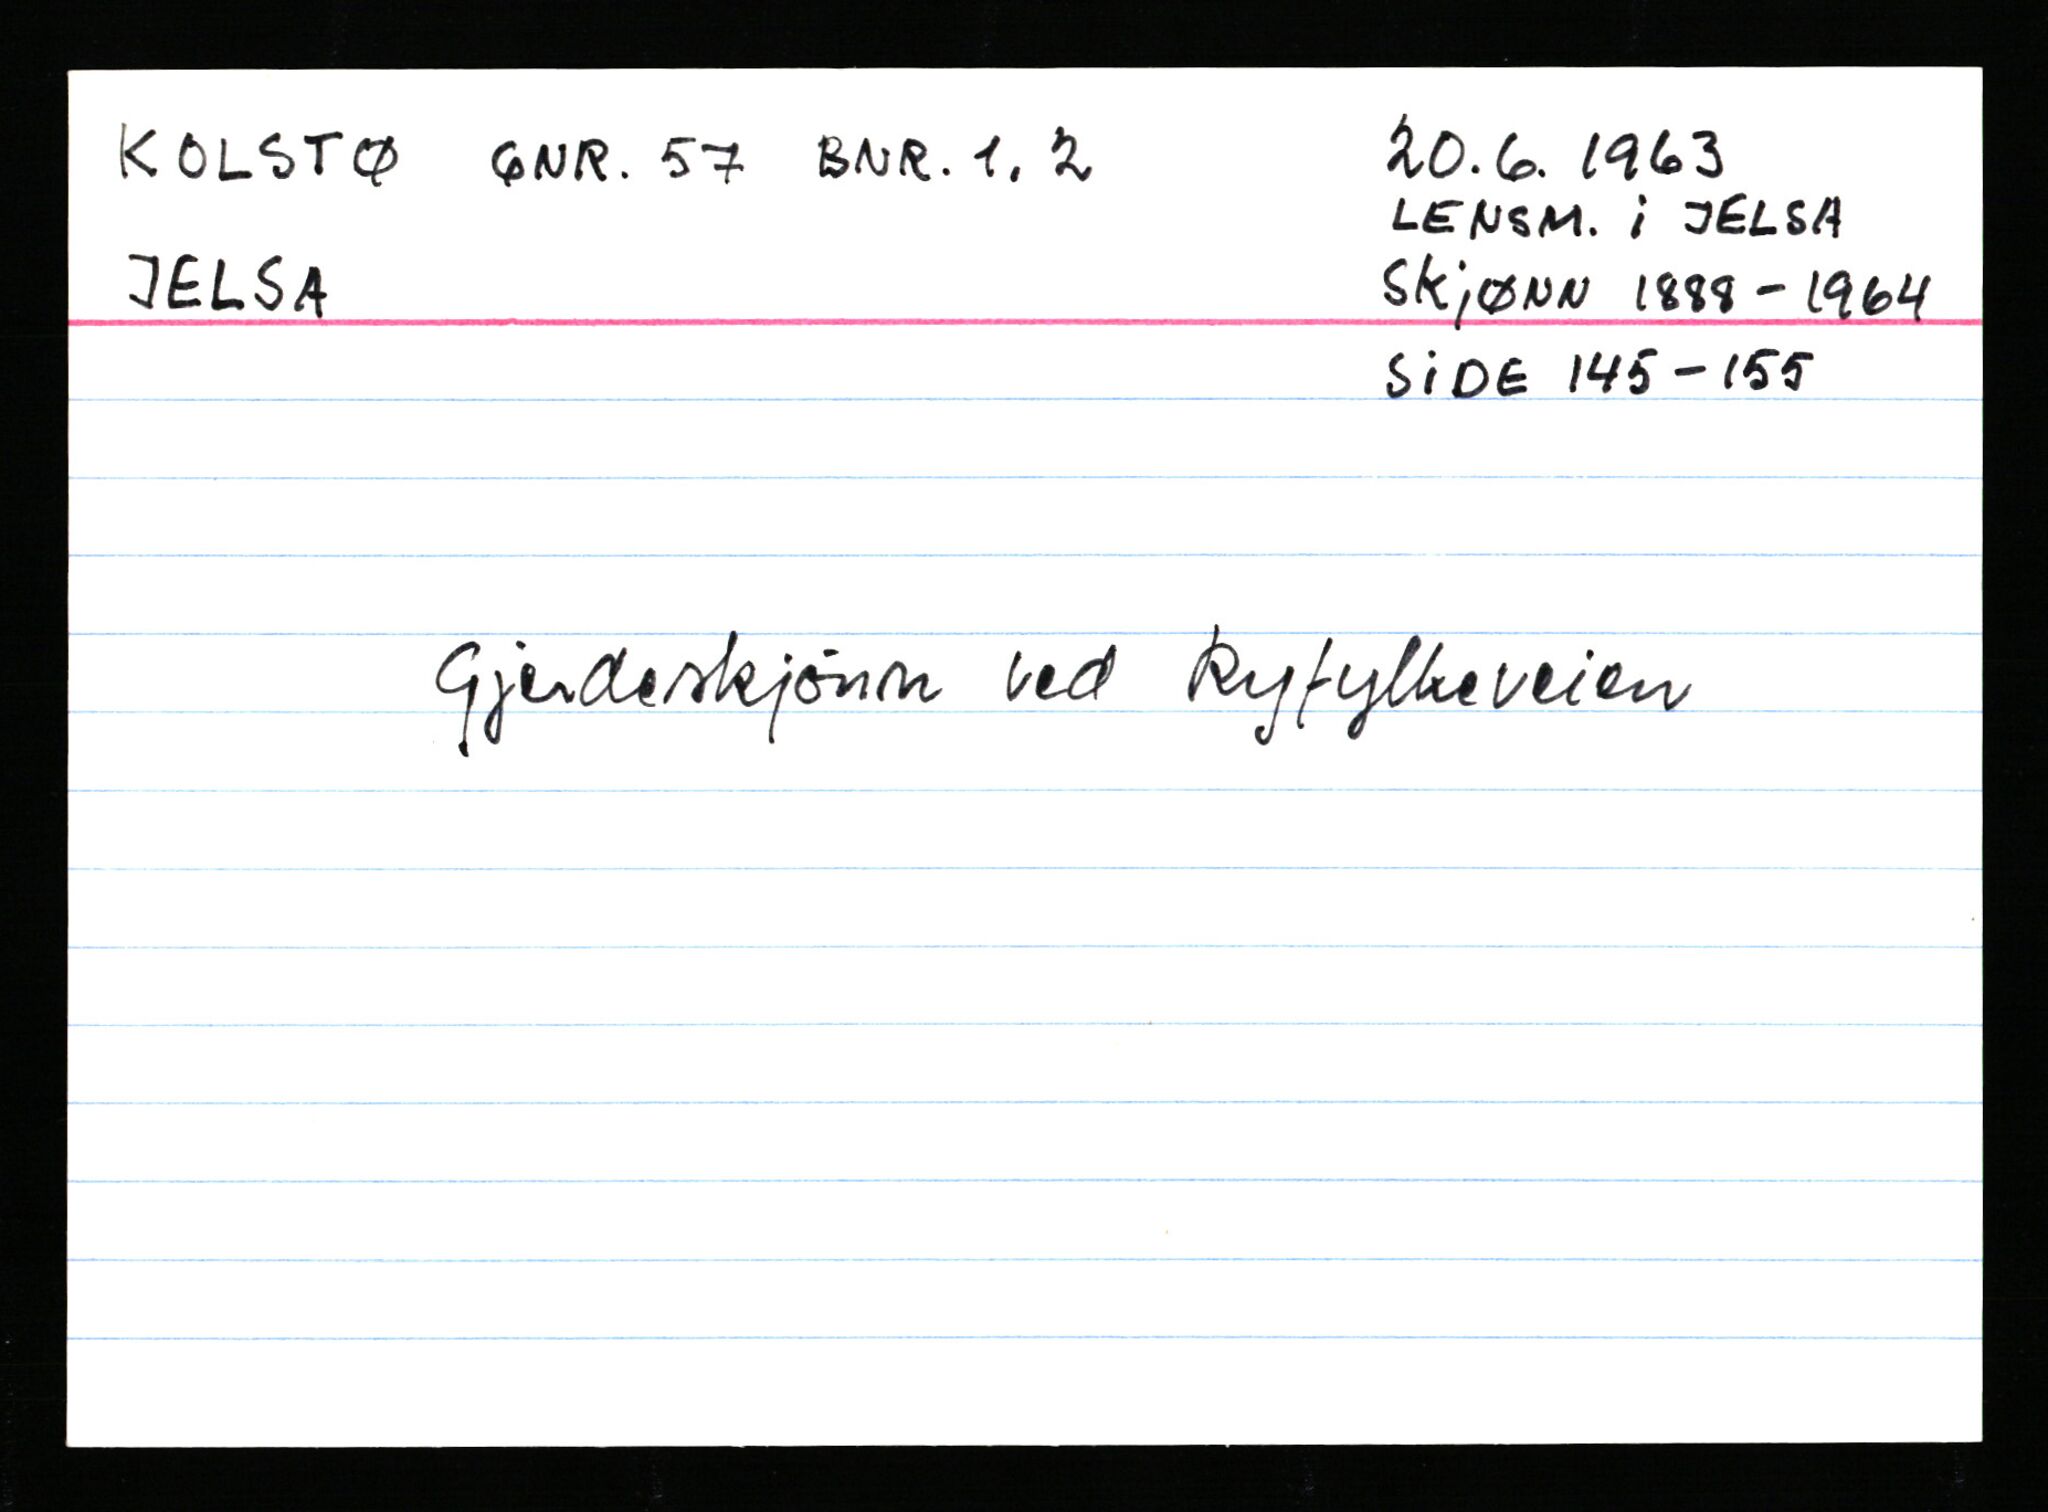 KOLSTØ GNR. 57 BNR. 1, 2
JELSA
20.6. 1963
LENSM. i JELSA
SKjØNN 1888-1964
SiDE 145-155
Gjerdeskjönn ved Ryfylkeveien